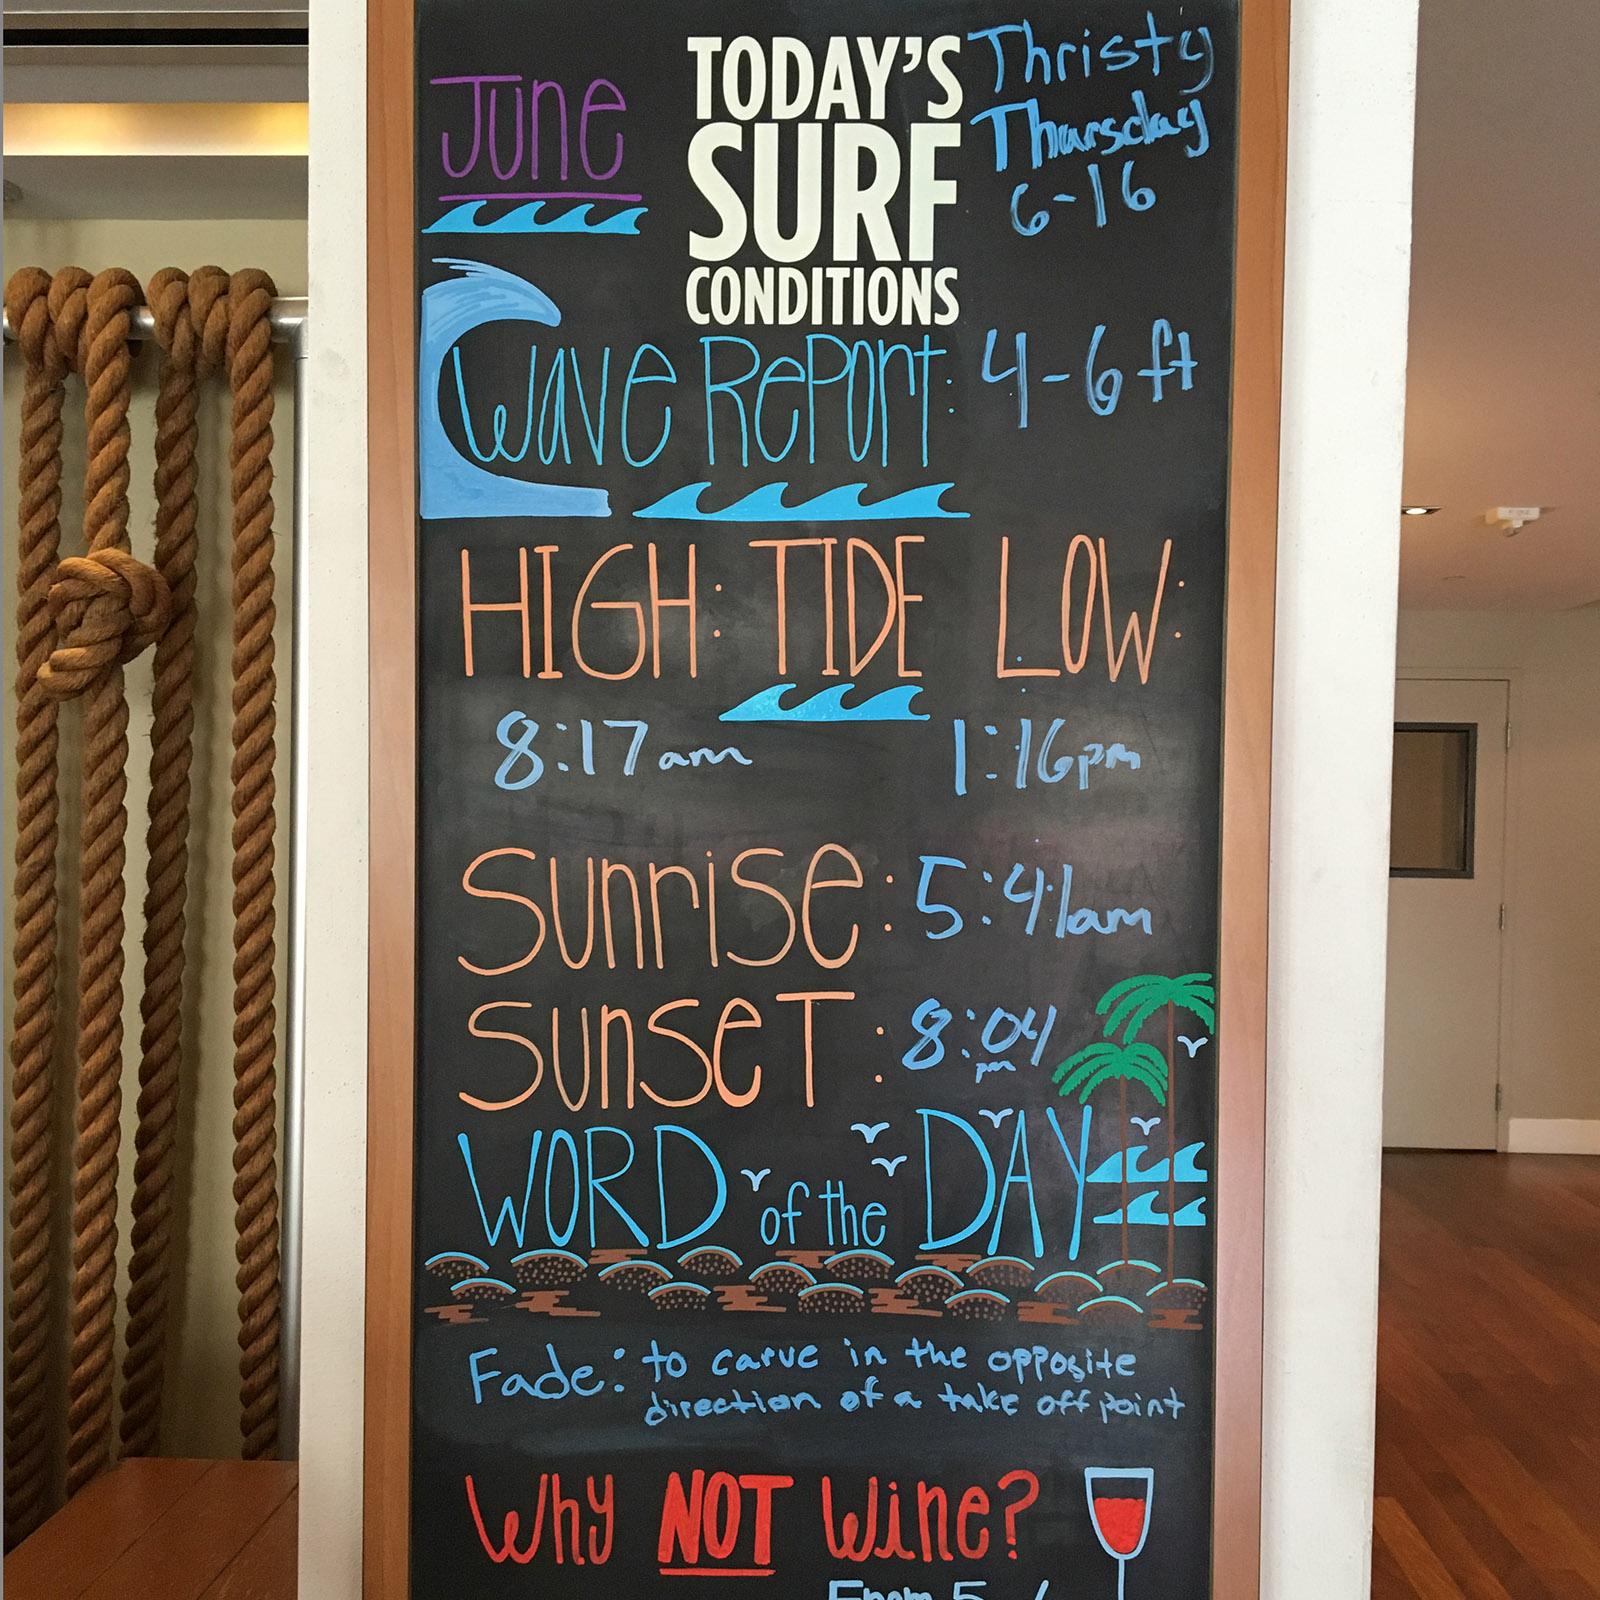 June
TODAY'S
SURF
CONDITIONS
Thristy
Thursday
6-16
Wave Report: 4-6 ft
HIGH: TIDE LOW:
8:17am 1:16pm
Sunrise: 5:41am
Sunset: 8:04
pm
WORD of the DAY
Fade: to carve in the opposite
direction of a take off point
Why NOT Wine?
From 5